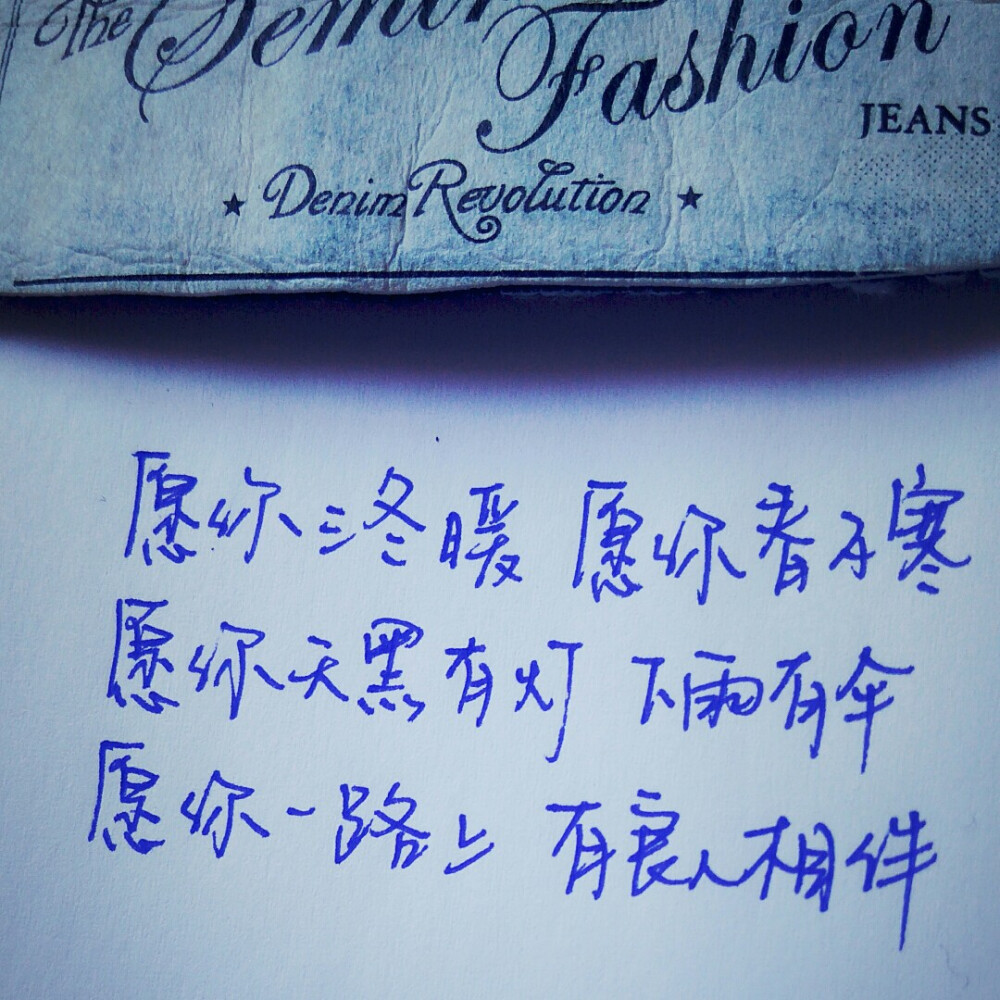 The
Fashion
JEANS
★ Denim Revolution ★
愿你三冬暖 愿你春不寒
愿你天黑有灯 下雨有伞
愿你一路上 有良人相伴